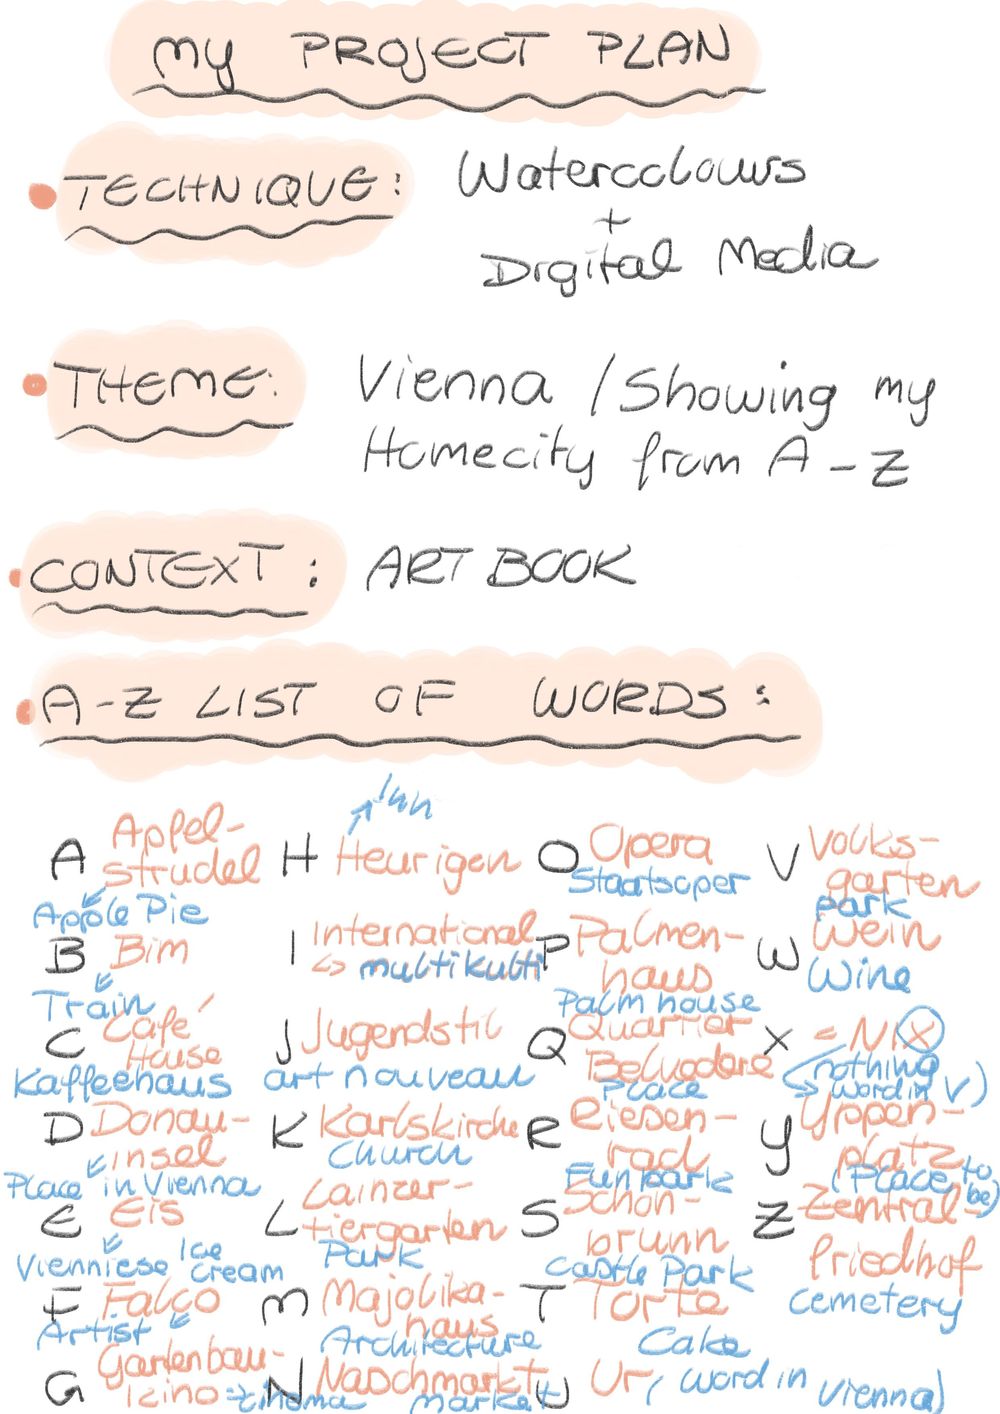 MY PROJECT PLAN
TECHNIQUE: Watercolours
+
Digital Media
THEME: Vienna / Showing my
Homecity from A-Z
CONTEXT: ART BOOK
A-Z LIST OF WORDS:
A Apfel-
strudel
Apple Pie
B Bim
Train
C Café
House
Kaffeehaus
D Donau-
insel
Place in Vienna
E Eis
Vienniese Ice
cream
F Falco
Artist
G Gartenbau-
kino = cinema
Inn
H Heurigen
I International
multikulti
J Jugendstil
art nouveau
K Karlskirche
Church
L Lainzer-
tiergarten
Park
M Majolika-
haus
Architecture
N Naschmarkt
market
O Opera
Staatsoper
P Palmen-
haus
Palm house
Q Quartier
Belvedere
Place
R Riesen-
rad
Funpark
S Schön-
brunn
Castle Park
T Torte
Cake
U Ur, (word in
Vienna)
V Volks-
garten
park
W Wein
Wine
X = NIX
(nothing
word in V)
Y Yppen-
platz
(Place to
be)
Z Zentral-
Friedhof
cemetery